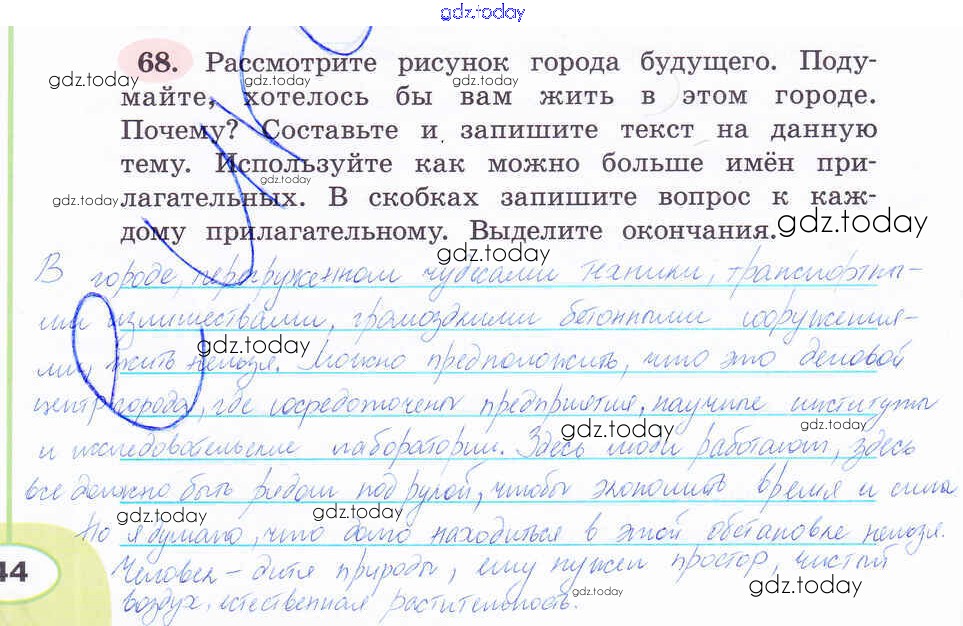 gdz.today
68. Рассмотрите рисунок города будущего. Поду-
gdz.today
майте, хотелось бы вам жить в этом городе.
Почему? Составьте и запишите текст на данную
тему. Используйте как можно больше имён при-
gdz.today
gdz.today
лагательных. В скобках запишите вопрос к каж-
дому прилагательному. Выделите окончания.
gdz.today
gdz.today
В городе, перегруженном чудесами техники, транспортны-
ми излишествами, громоздкими бетонными сооружения-
gdz.today
ми, жить нельзя. Можно предположить, что это деловой
центр города, где сосредоточены предприятия, научные институты
gdz.today
и исследовательские лаборатории. Здесь люди работают, здесь
все должно быть рядом под рукой, чтобы экономить время и силы.
gdz.today
gdz.today
Но я думаю, что долго находиться в этой обстановке нельзя.
44
Человек - дитя природы, ему нужен простор, чистый
gdz.today
gdz.today
воздух, естественная растительность.